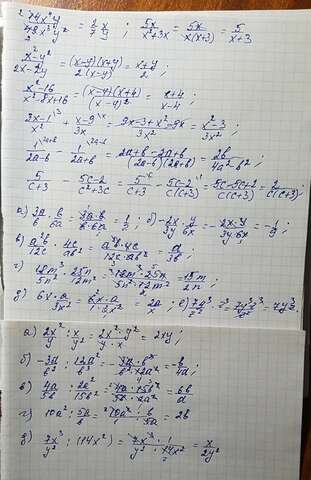 5x/(x²+3x) = 5x/(x(x+3)) = 5/(x+3)
(x²-y²)/(2x-2y) = ((x-y)(x+y))/(2(x-y)) = (x+y)/2 ;
(x²-16)/(x²-8x+16) = ((x-4)(x+4))/(x-4)² = (x+4)/(x-4)
(3x-1)/x² - (x-9)/3x = (9x-3-x²+9x)/3x²
1/(2a-b) - 1/(2a+b) = (2a+b-2a+b)/((2a-b)(2a+b)) = 2b/(4a²-b²) ;
5/(c+3) - (5c-2)/(c²+3c) = 5/(c+3) - (5c-2)/(c(c+3)) = (5c-5c+2)/(c(c+3)) = 2/(c(c+3)) ;
а) 3a/b · b/6a = 3a·b/b·6a = 1/2 ; б) -2x/3y · y/6x = -2x·y/3y·6x = -1/9 ;
в) a²b/12c · 4c/ab² = a²b·4c/12c·ab² = a/3b ;
г) 18m³/5n² · 25n/12m² = 18m³·25n/5n²·12m² = 15m/2n ;
д) 6x · a/3x² = 6x·a/1·3x² = 2a/x ;
а) 2x²/y : x/y² = 2x²·y²/y·x = 2xy ;
б) -3a/b² : 12a²/b³ = -3a·b³/b²·12a² = -b/4a ;
в) 4a/5b : 2a²/15b² = 4a·15b²/5b·2a² = 6b/a
г) 10a² : 5a/b = 10a²·b/1·5a = 2b
д) 7x³/y² : (14x²) = 7x³·1/y²·14x² = x/2y²